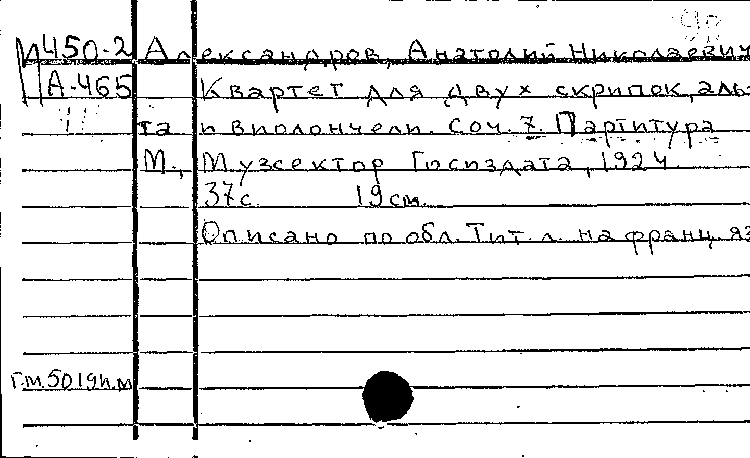 И450-2 Александров, Анатолий Николаевич
А-465 Квартет для двух скрипок, аль-
та и виолончели. Соч. 7. Партитура
М., Музсектор Госиздата, 1924
37с. 19см.
Описано по обл. Тит. л. на франц. яз
Г.М.5019и.м